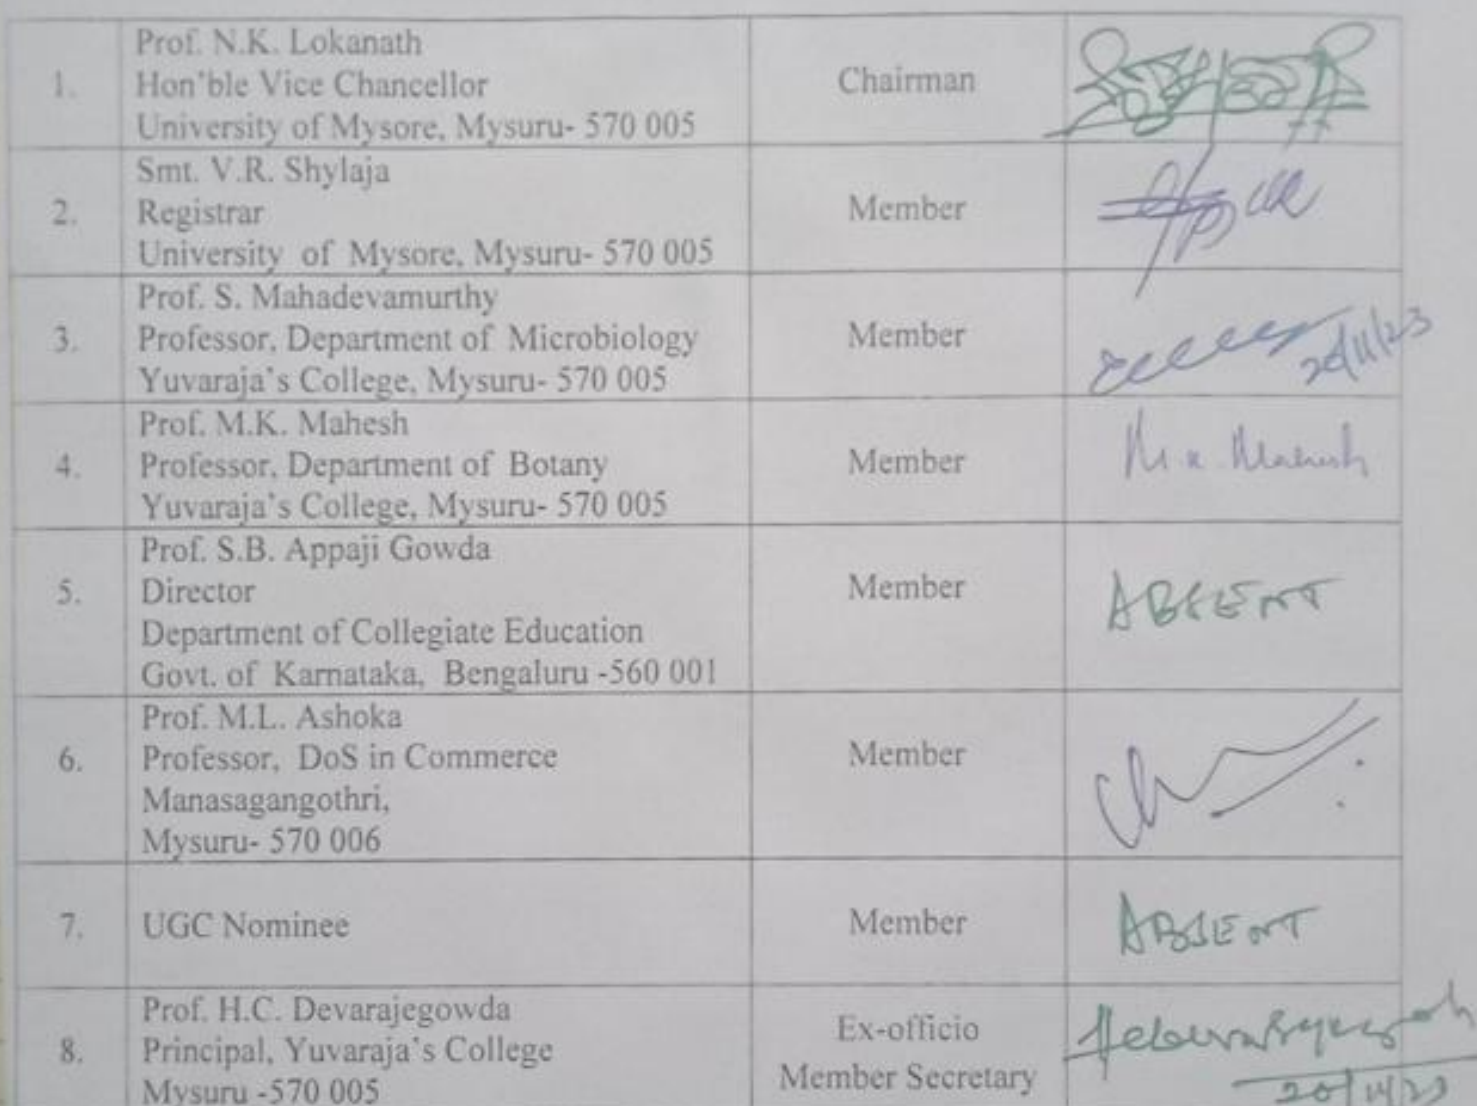 1.
Prof. N.K. Lokanath
Hon'ble Vice Chancellor
University of Mysore, Mysuru- 570 005
Chairman
2.
Smt. V.R. Shylaja
Registrar
University of Mysore, Mysuru- 570 005
Member
3.
Prof. S. Mahadevamurthy
Professor, Department of Microbiology
Yuvaraja's College, Mysuru- 570 005
Member
20/11/23
4.
Prof. M.K. Mahesh
Professor, Department of Botany
Yuvaraja's College, Mysuru- 570 005
Member
M.K. Mahesh
5.
Prof. S.B. Appaji Gowda
Director
Department of Collegiate Education
Govt. of Karnataka, Bengaluru -560 001
Member
ABSENT
6.
Prof. M.L. Ashoka
Professor, DoS in Commerce
Manasagangothri,
Mysuru- 570 006
Member
7.
UGC Nominee
Member
ABSENT
8.
Prof. H.C. Devarajegowda
Principal, Yuvaraja's College
Mysuru -570 005
Ex-officio
Member Secretary
20/11/23